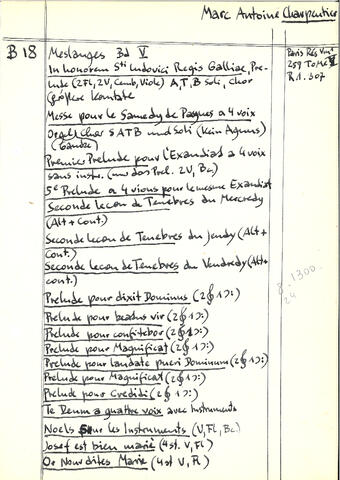 Marc Antoine Charpentier
B 18 Meslanges Bd V
In honorem Sti Ludovici Regis Galliae, Pre-
lude (2Fl, 2V, Cemb, Viole) A, T, B Soli, Chor
größere Kantate
Messe pour le Samedy de Pasques a 4 voix
Orgel, Chor SATB und Soli (Kein Agnus)
(Ganze)
Premier Prelude pour l'Exaudiat a 4 voix
sans instr. (nur das Prel. 2V, Bc)
5e Prelude a 4 vions pour le mesme Exaudiat
Seconde lecon de Tenebres du Mercredy
(Alt + Cont.)
Seconde lecon de Tenebres du jeudy (Alt +
Cont.)
Seconde lecon de Tenebres du Vendredy (Alt +
cont.)
Prelude pour dixit Dominus (2 1)
Prelude pour beatus vir (2 1)
Prelude pour confitebor (2 1)
Prelude pour Magnificat (2 1)
Prelude pour laudate pueri Dominum (2 1)
Prelude pour Magnificat (2 1)
Prelude pour Credidi (2 1)
Te Deum a quattre voix avec Instruments
Noels sur les Instruments (V, Fl, Bc)
Josef est bien marié (4st. V, Fl)
Or Nous dites Marie (4st V, Fl)
Paris Rés Vm1
259 Tome V
R.1.307
8.1300
24